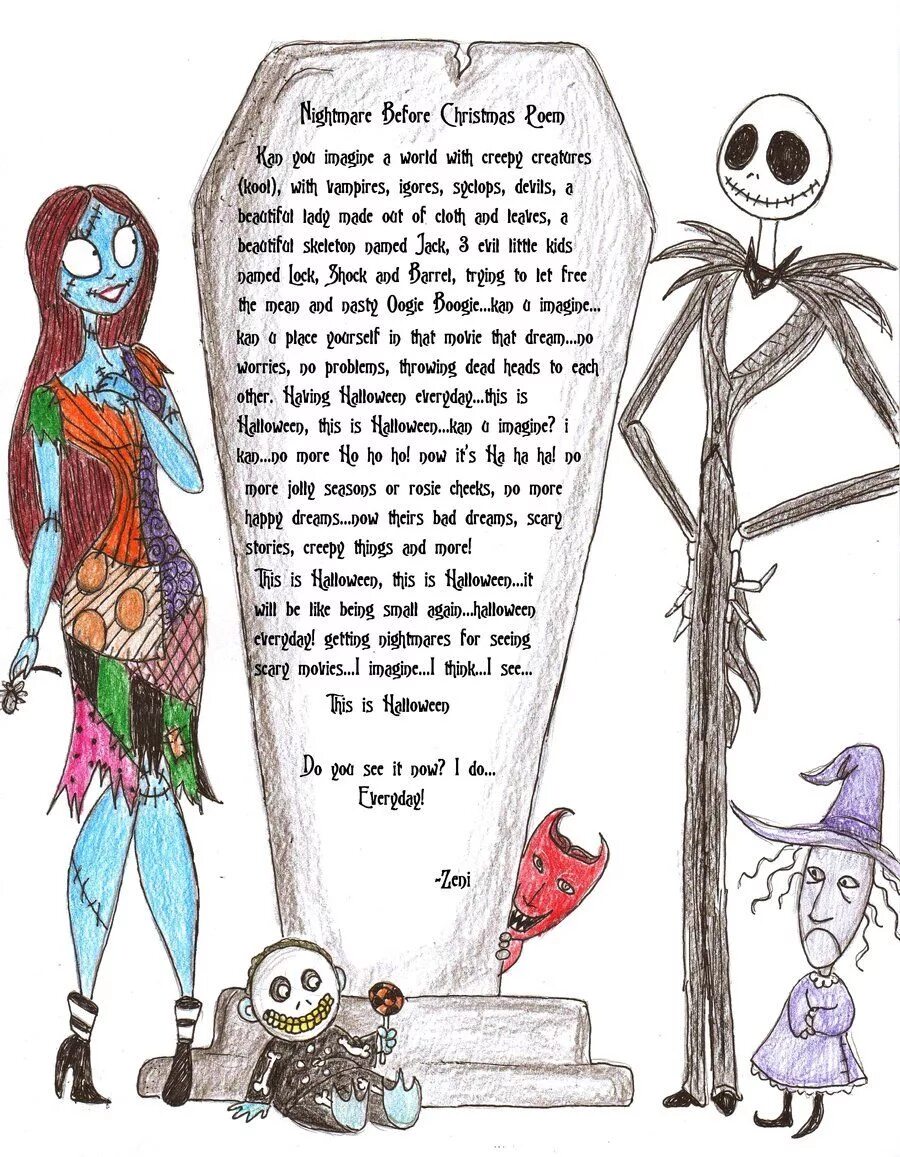 Nightmare Before Christmas Poem
Kan you imagine a world with creepy creatures
(kool), with vampires, igores, syclops, devils, a
beautiful lady made out of cloth and leaves, a
beautiful skeleton named Jack, 3 evil little kids
named Lock, Shock and Barrel, trying to let free
the mean and nasty Oogie Boogie...kan u imagine...
kan u place yourself in that movie that dream...no
worries, no problems, throwing dead heads to each
other. Having Halloween everyday...this is
Halloween, this is Halloween...kan u imagine? i
kan...no more Ho ho ho! now it's Ha ha ha! no
more jolly seasons or rosie cheeks, no more
happy dreams...now theirs bad dreams, scary
stories, creepy things and more!
This is Halloween, this is Halloween...it
will be like being small again...halloween
everyday! getting nightmares for seeing
scary movies...I imagine...I think...I see...
This is Halloween
Do you see it now? I do...
Everyday!
-Zeni